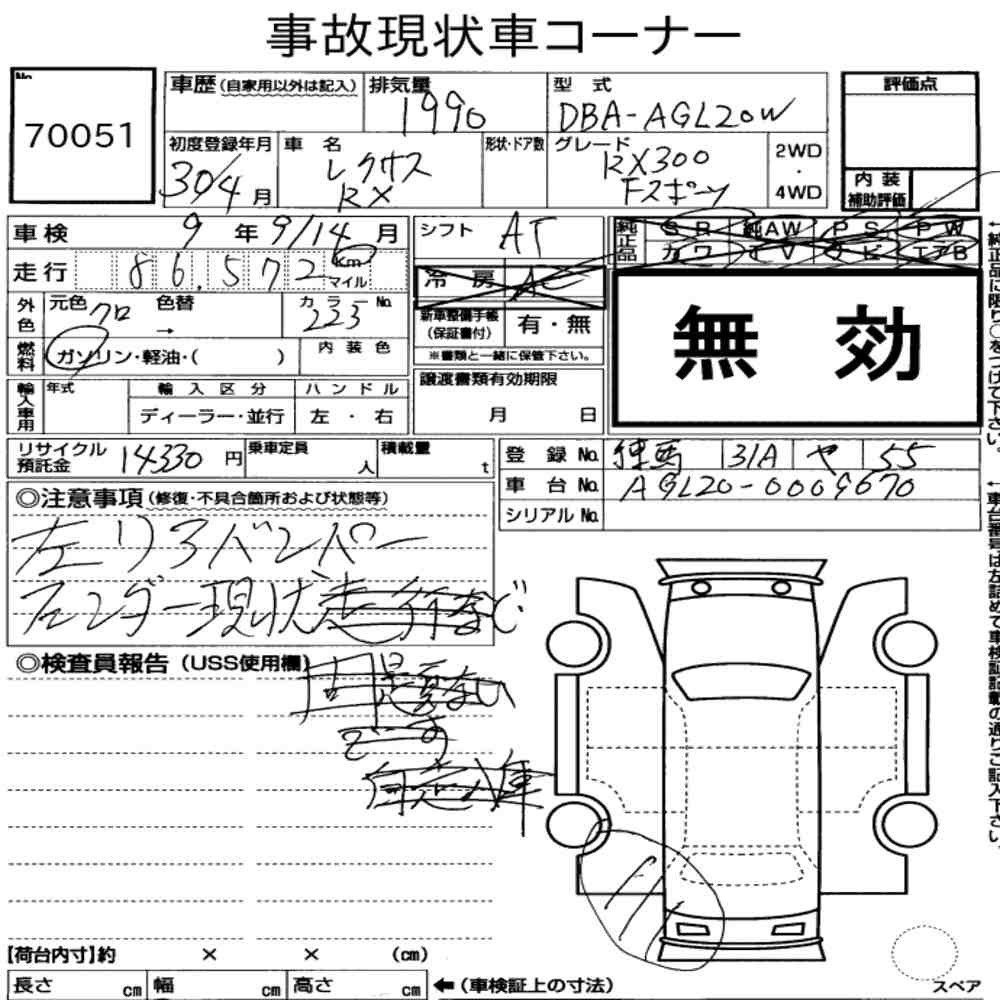 事故現状車コーナー
No.
70051
車歴(自家用以外は記入)
排気量
1990
型式
DBA-AGL20W
評価点
初度登録年月
30/4月
車名
レクサス
RX
形状・ドア数
グレード
RX300
Fスポーツ
2WD
・
4WD
内装
補助評価
車検 9年9/14月
シフト AT
純正品
SR 純AW PS PW
カワ TV ナビ エアB
走行 86,572 Km
マイル
冷房 A
外色
元色 クロ
色替
→
カラーNo.
223
新車整備手帳
(保証書付)
有・無
※書類と一緒に保管下さい。
燃料
ガソリン・軽油・( )
内装色
無効
輸入車用
年式
輸入区分
ハンドル
ディーラー・並行
左・右
譲渡書類有効期限
月 日
リサイクル
預託金
14330円
乗車定員
人
積載量
t
登録No. 練馬 31A や 55
車台No. AGL20-0009670
シリアルNo.
◎注意事項(修復・不具合箇所および状態等)
左リアバンパー
フェンダー現状走行など
◎検査員報告(USS使用欄)
問題ない
です
自走入庫
←純正品に限り○をつけて下さい。
←車台番号は左詰めで車検証記載の通りご記入下さい。
【荷台内寸】約 × × (cm)
長さ cm 幅 cm 高さ cm
←(車検証上の寸法)
スペア